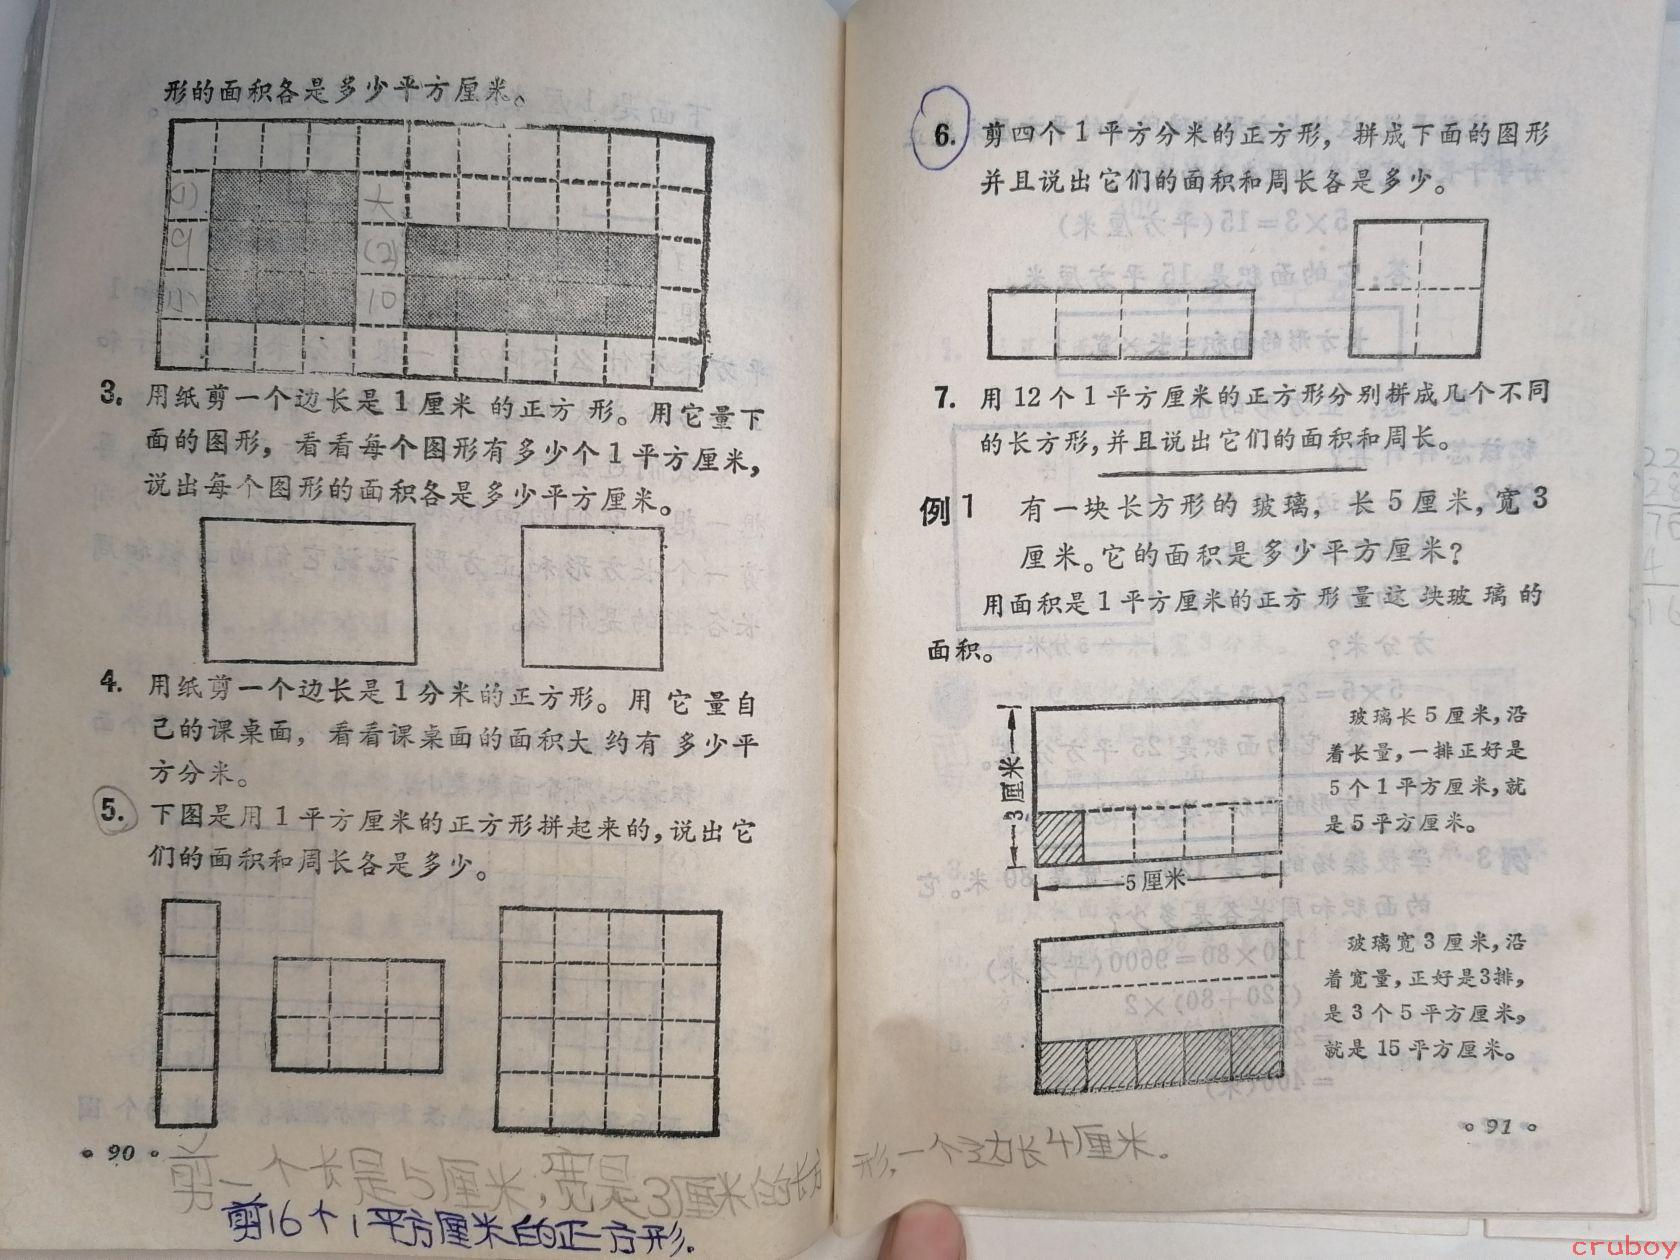 形的面积各是多少平方厘米。
(1)
大
9
(2)
小
10
3. 用纸剪一个边长是1厘米的正方形。用它量下
面的图形，看看每个图形有多少个1平方厘米，
说出每个图形的面积各是多少平方厘米。
4. 用纸剪一个边长是1分米的正方形。用它量自
己的课桌面，看看课桌面的面积大约有多少平
方分米。
5. 下图是用1平方厘米的正方形拼起来的，说出它
们的面积和周长各是多少。
• 90 •
剪一个长是5厘米，宽是3厘米的长方形，一个边长4厘米。
剪16个1平方厘米的正方形.
6. 剪四个1平方分米的正方形，拼成下面的图形
并且说出它们的面积和周长各是多少。
7. 用12个1平方厘米的正方形分别拼成几个不同
的长方形，并且说出它们的面积和周长。
例1 有一块长方形的玻璃，长5厘米，宽3
厘米。它的面积是多少平方厘米？
用面积是1平方厘米的正方形量这块玻璃的
面积。
3厘米
5厘米
玻璃长5厘米，沿
着长量，一排正好是
5个1平方厘米，就
是5平方厘米。
玻璃宽3厘米，沿
着宽量，正好是3排，
是3个5平方厘米，
就是15平方厘米。
• 91 •
cruboy